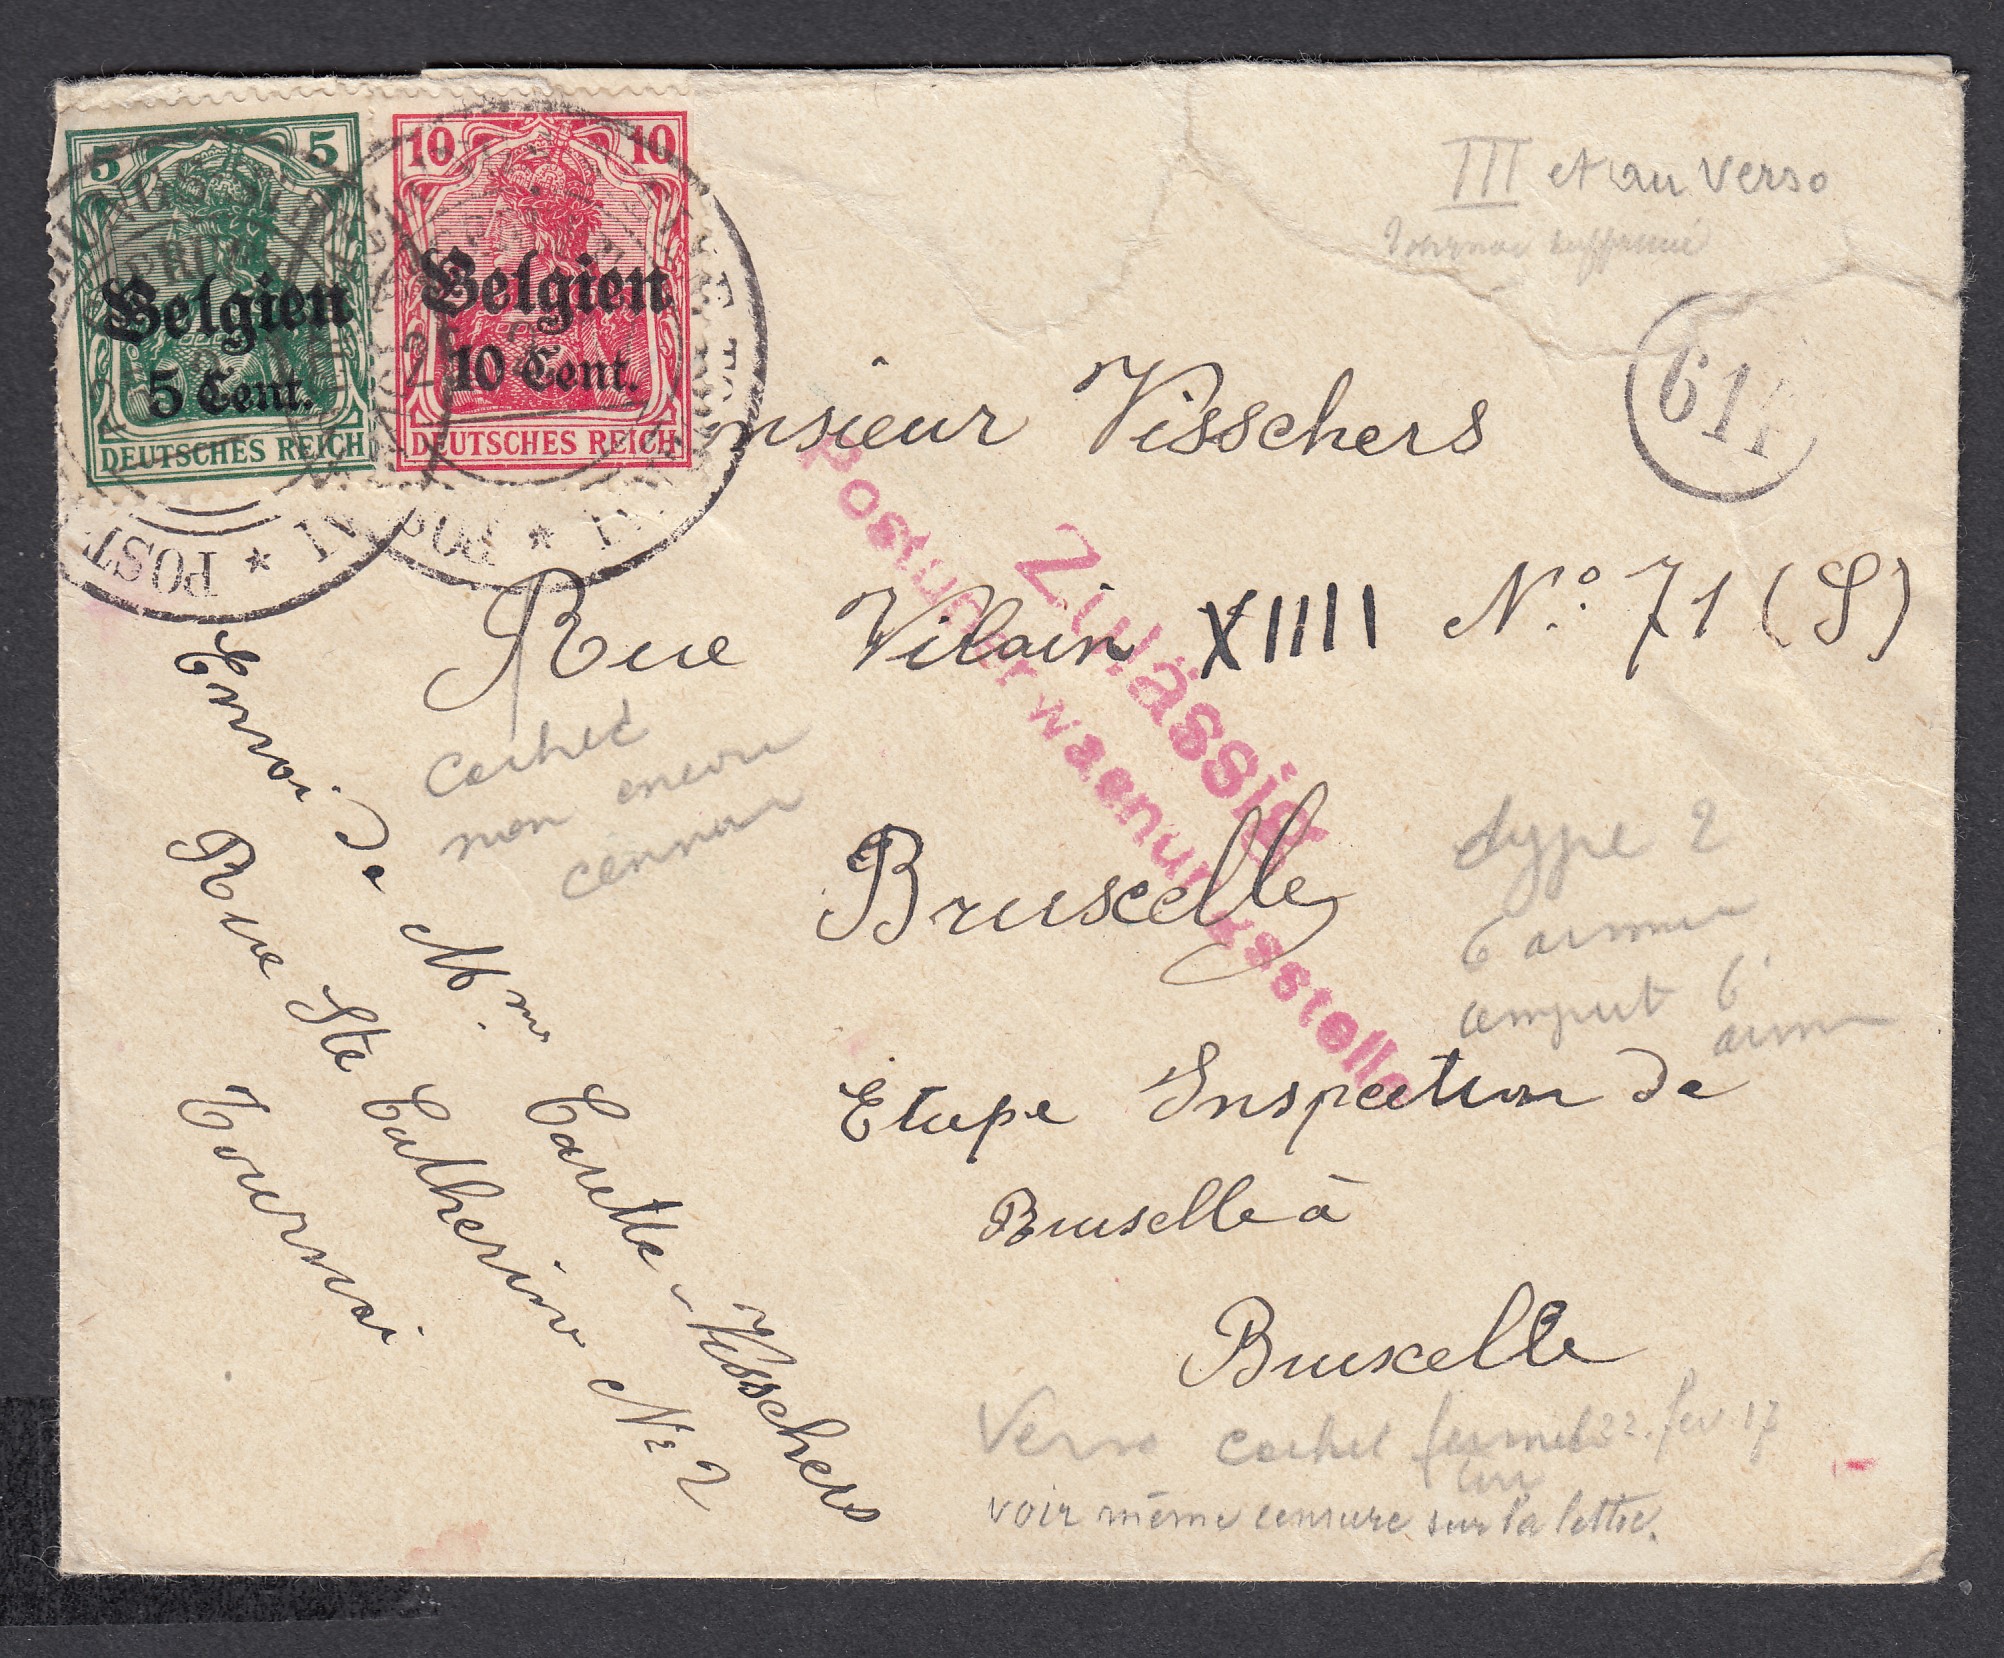 5 5
Belgien
5 Cent.
DEUTSCHES REICH
10 10
Belgien
10 Cent.
DEUTSCHES REICH
POST
III et au verso
Tournai supprimé
614
onsieur Visschers
Zulässig
Postüberwachungsstelle
Rue Vilain XIIII N° 71 (S)
Cachet
non encore
Bruxelle
type 2
6 armee
6
Etape Inspection de
Bruxelle à
Bruxelle
Envoi de Mme Carette-Visschers
Rue Ste Catherine N° 2
Tournai
Verso cachet 22. fev. 17
voir même censure sur la lettre.